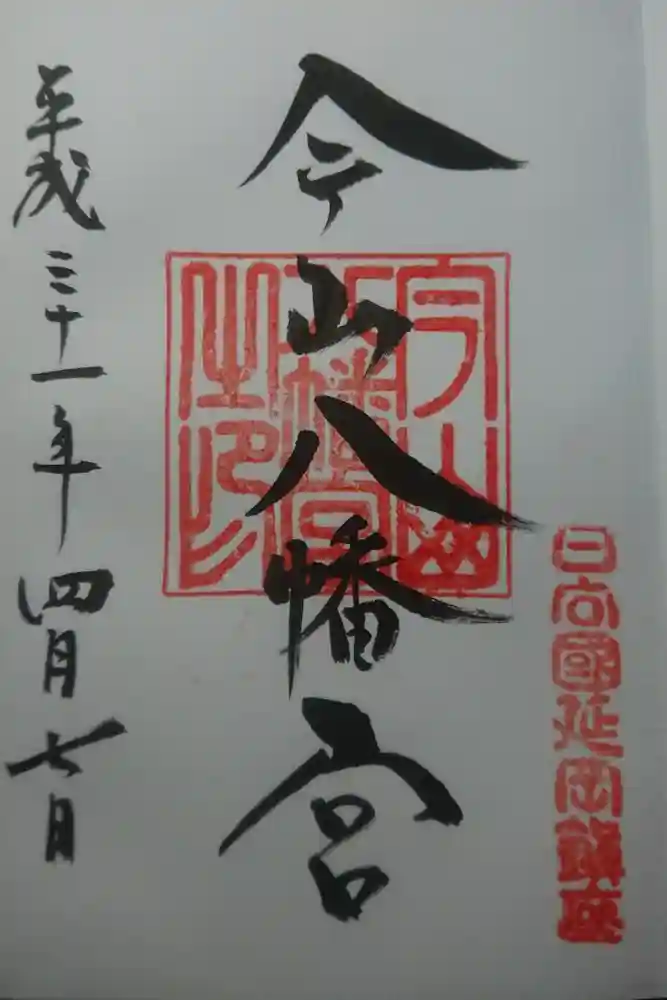 日向國延岡鎮座
今山八幡宮
今山
八幡宮
之印
平成三十一年四月七日